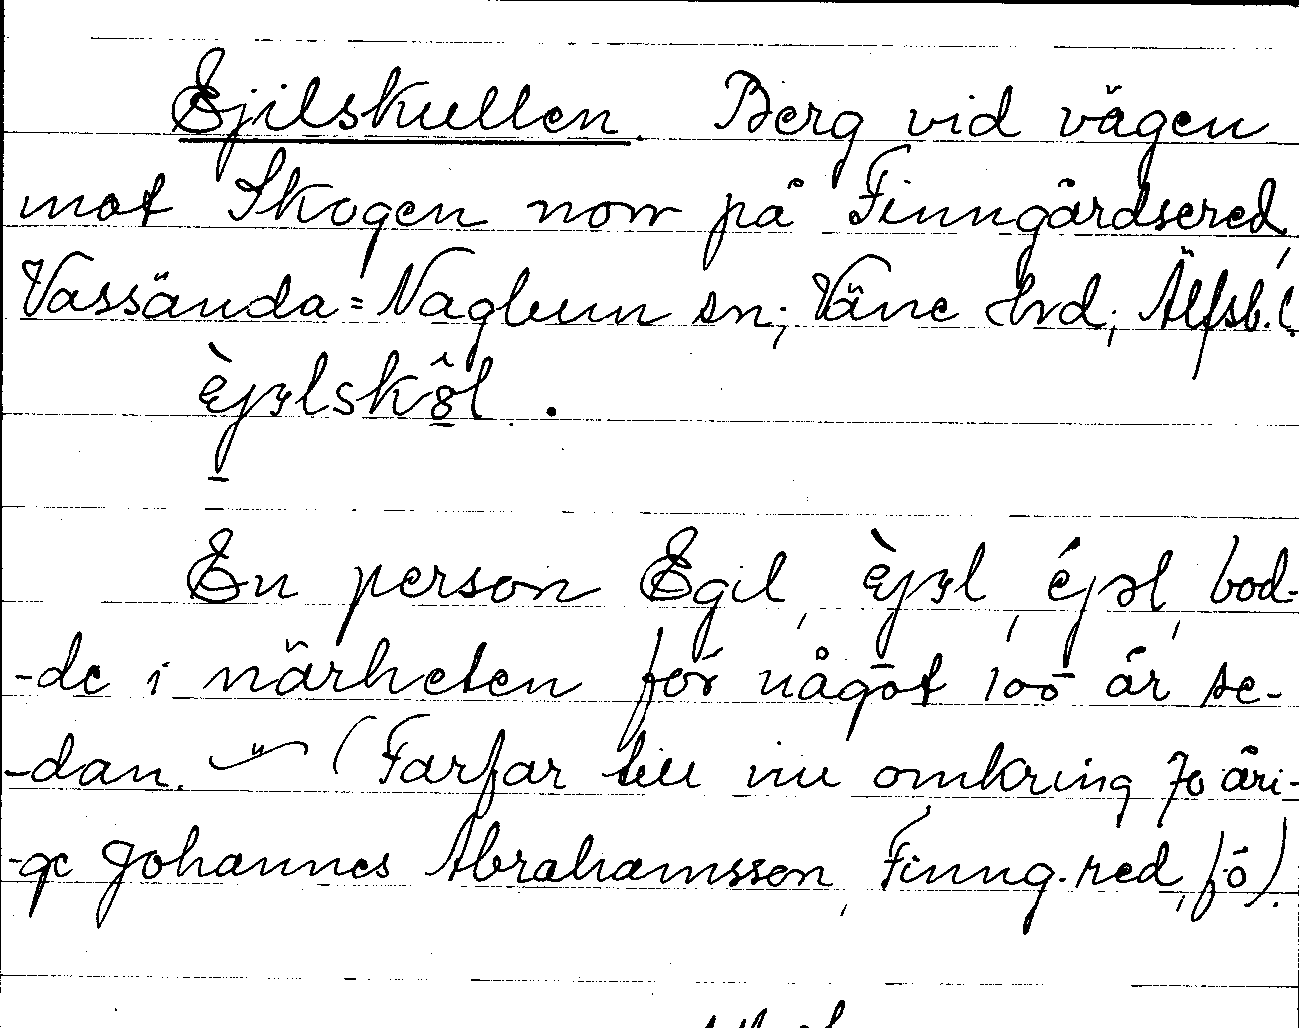 Ejilskullen. Berg vid vägen
mot Skogen norr på Finngårdsered,
Vassända=Naglum sn; Väne hrd; Älfsb. l.
èjılskôl.
En person Egil, èjıl, éjəl, bod-
-de i närheten för något 100 år se-
-dan. (Farfar till nu omkring 70 åri-
-ge Johannes Abrahamsson, Finng.red, fö).